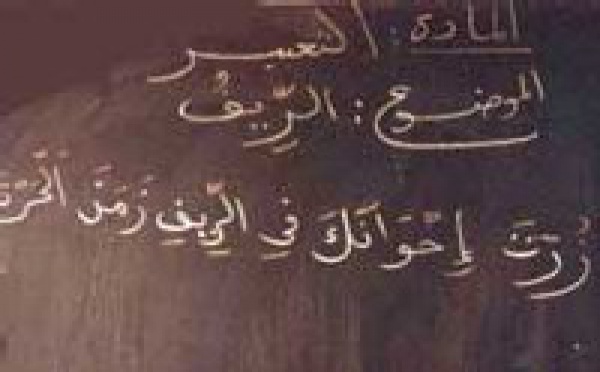 المادة : التعبير
الموضوع : الرِّيفُ
زُرْتَ إِخْوَانَكَ فِي الرِّيفِ زَمَنَ